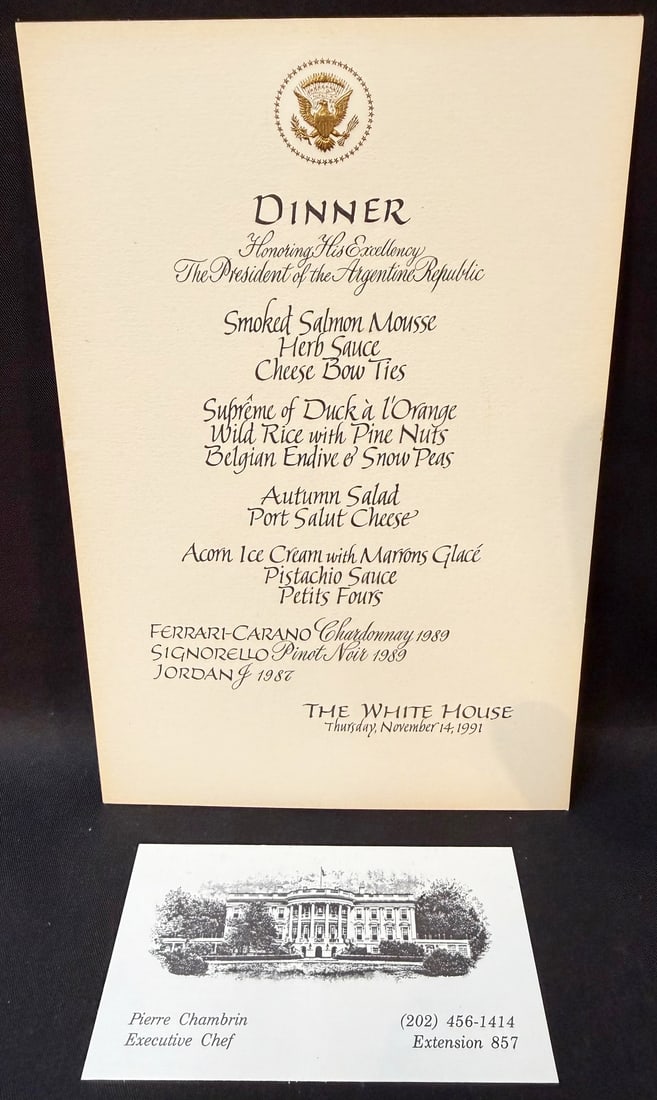 DINNER
Honoring His Excellency
The President of the Argentine Republic
Smoked Salmon Mousse
Herb Sauce
Cheese Bow Ties
Suprême of Duck à l'Orange
Wild Rice with Pine Nuts
Belgian Endive & Snow Peas
Autumn Salad
Port Salut Cheese
Acorn Ice Cream with Marrons Glacé
Pistachio Sauce
Petits Fours
FERRARI-CARANO Chardonnay 1989
SIGNORELLO Pinot Noir 1989
JORDAN J 1987
THE WHITE HOUSE
Thursday, November 14, 1991
Pierre Chambrin
Executive Chef
(202) 456-1414
Extension 857